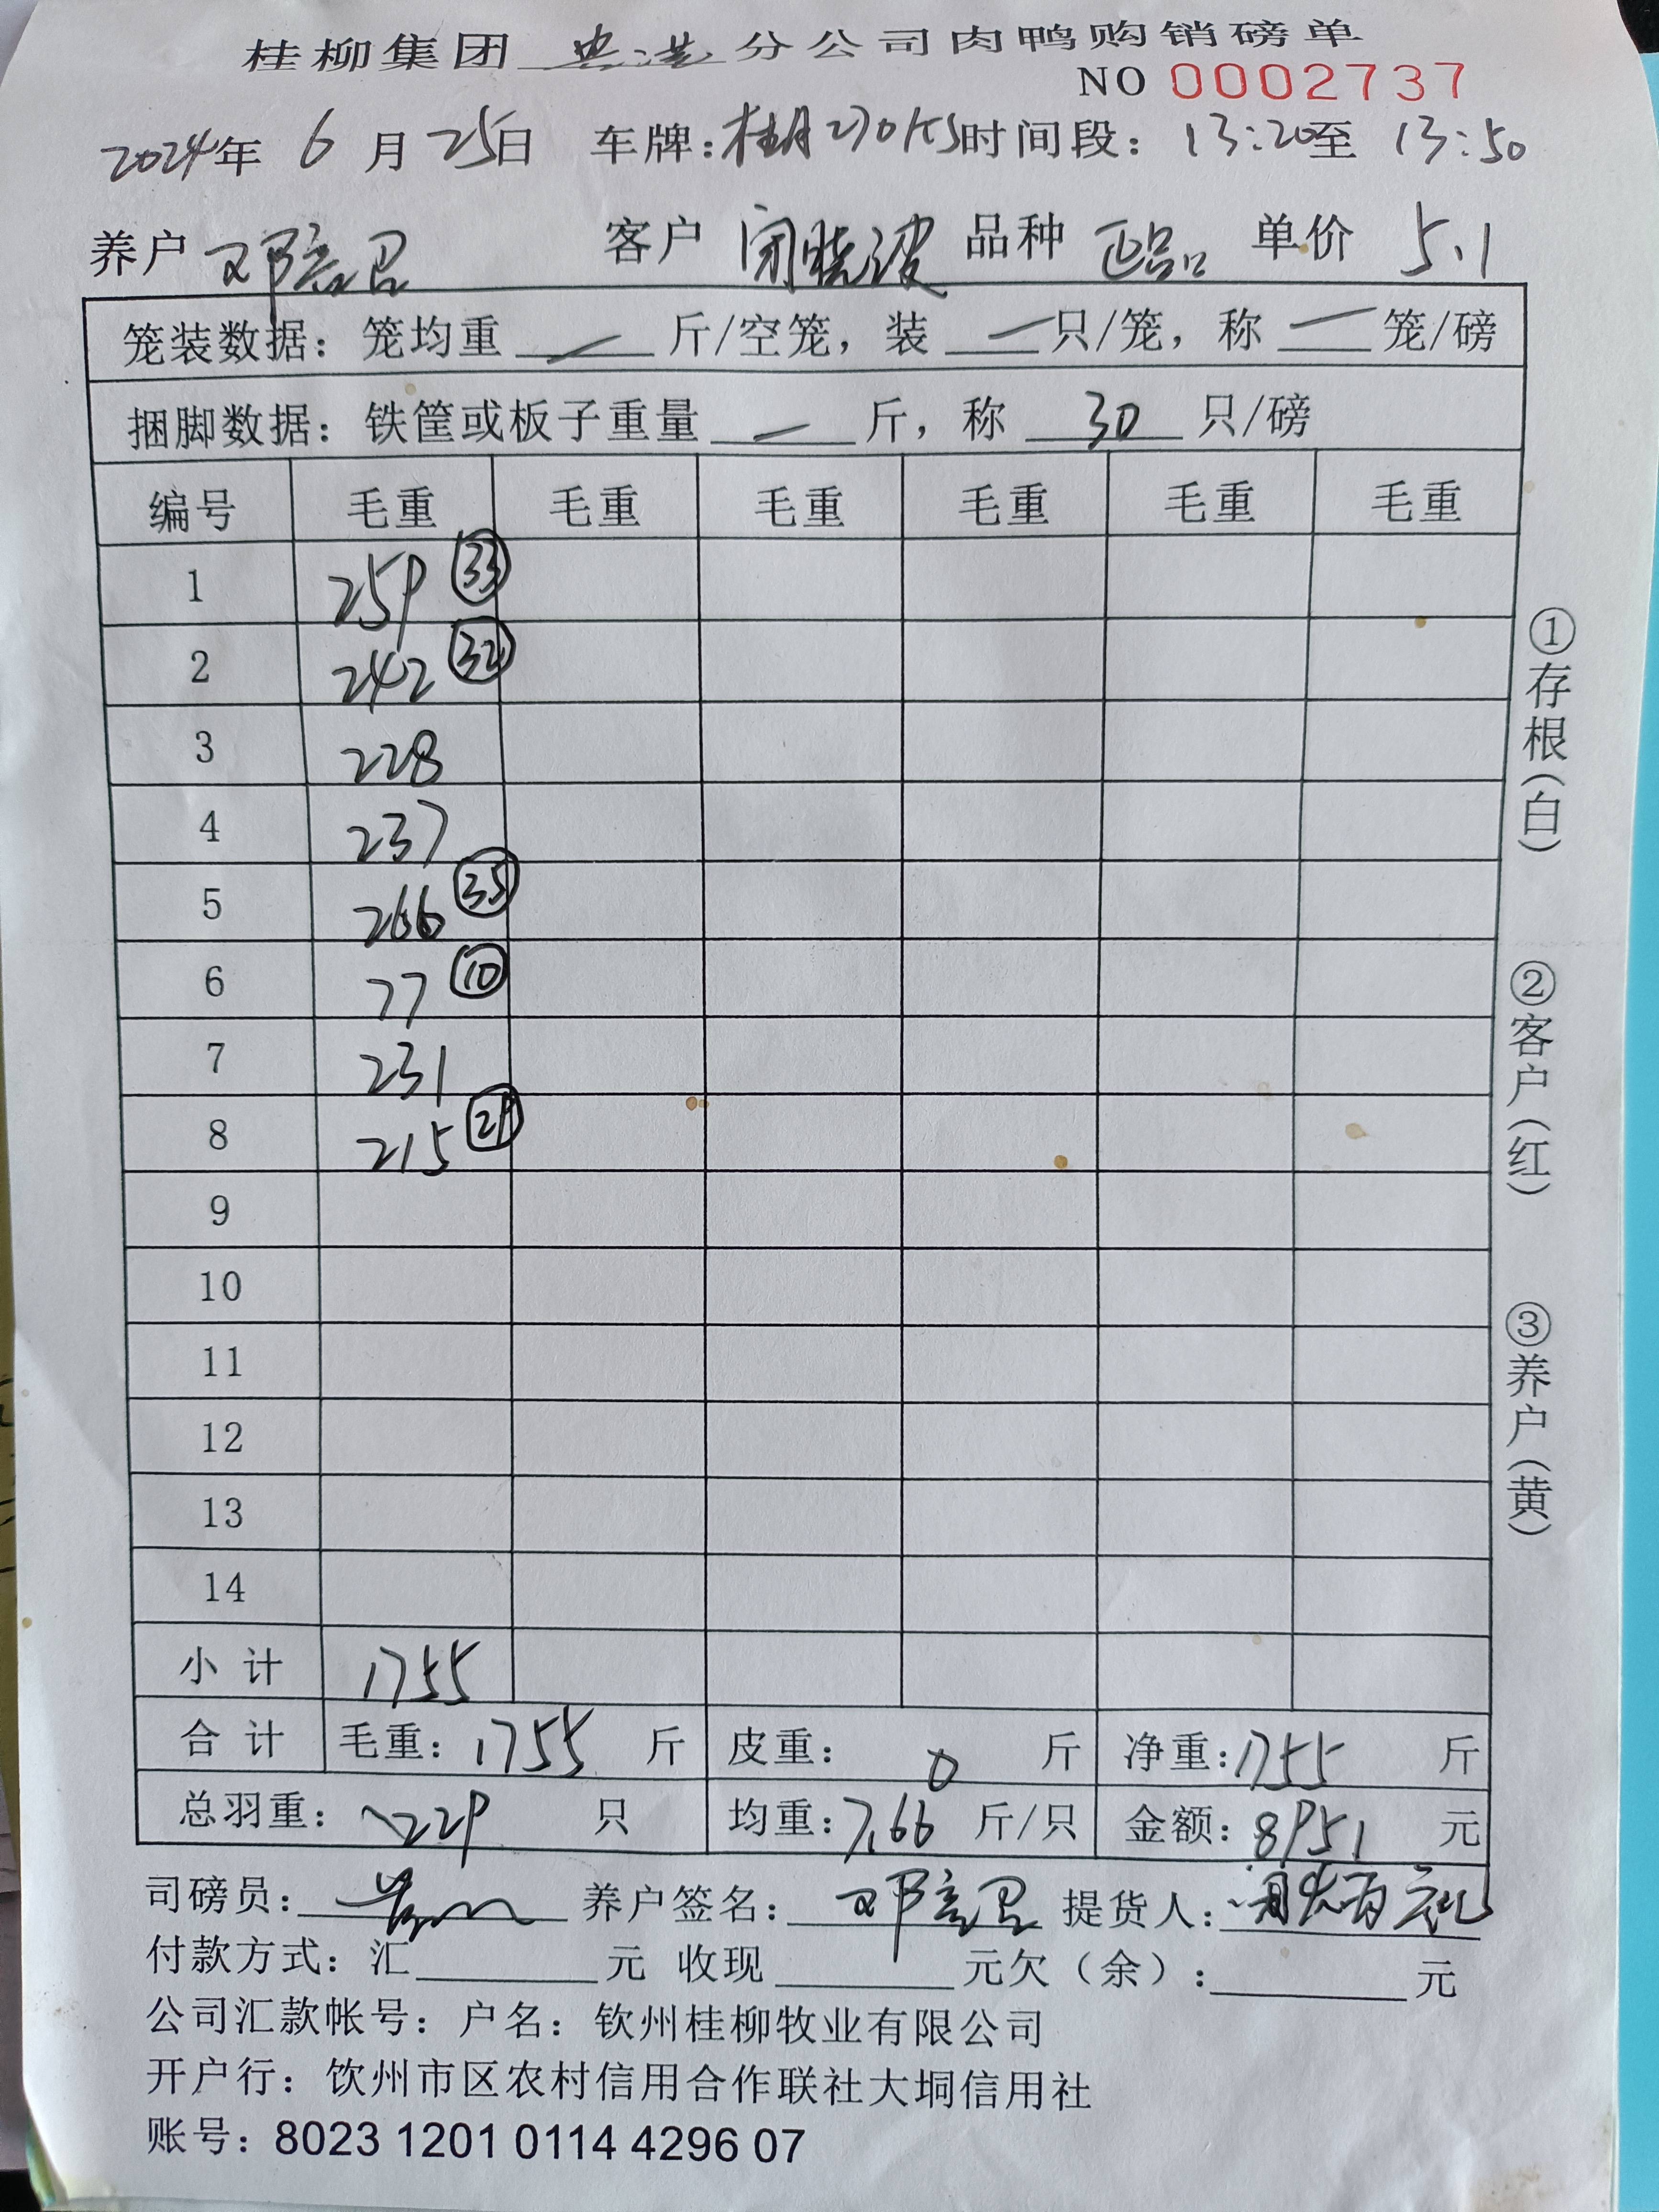 桂柳集团 贵港 分公司肉鸭购销磅单
NO 0002737
2024年 6 月 25日 车牌: 时间段: 13:20至 13:50
养户 邓 客户 闭晓波 品种 正品 单价 5.1
笼装数据: 笼均重 — 斤/空笼, 装 — 只/笼, 称 — 笼/磅
捆脚数据: 铁筐或板子重量 — 斤, 称 30 只/磅
编号 毛重 毛重 毛重 毛重 毛重 毛重
1 259 ㉝
2 242 ㉜
3 228
4 237
5 266 ㉟
6 77 ⑩
7 231
8 215 ㉙
9
10
11
12
13
14
小 计 1755
合 计 毛重: 1755 斤 皮重: 0 斤 净重: 1755 斤
总羽重: 229 只 均重: 7.66 斤/只 金额: 8951 元
司磅员: 养户签名: 邓 提货人:
付款方式: 汇 元 收现 元欠（余）: 元
公司汇款帐号: 户名: 钦州桂柳牧业有限公司
开户行: 饮州市区农村信用合作联社大垌信用社
账号: 8023 1201 0114 4296 07
①存根(白)
②客户(红)
③养户(黄)